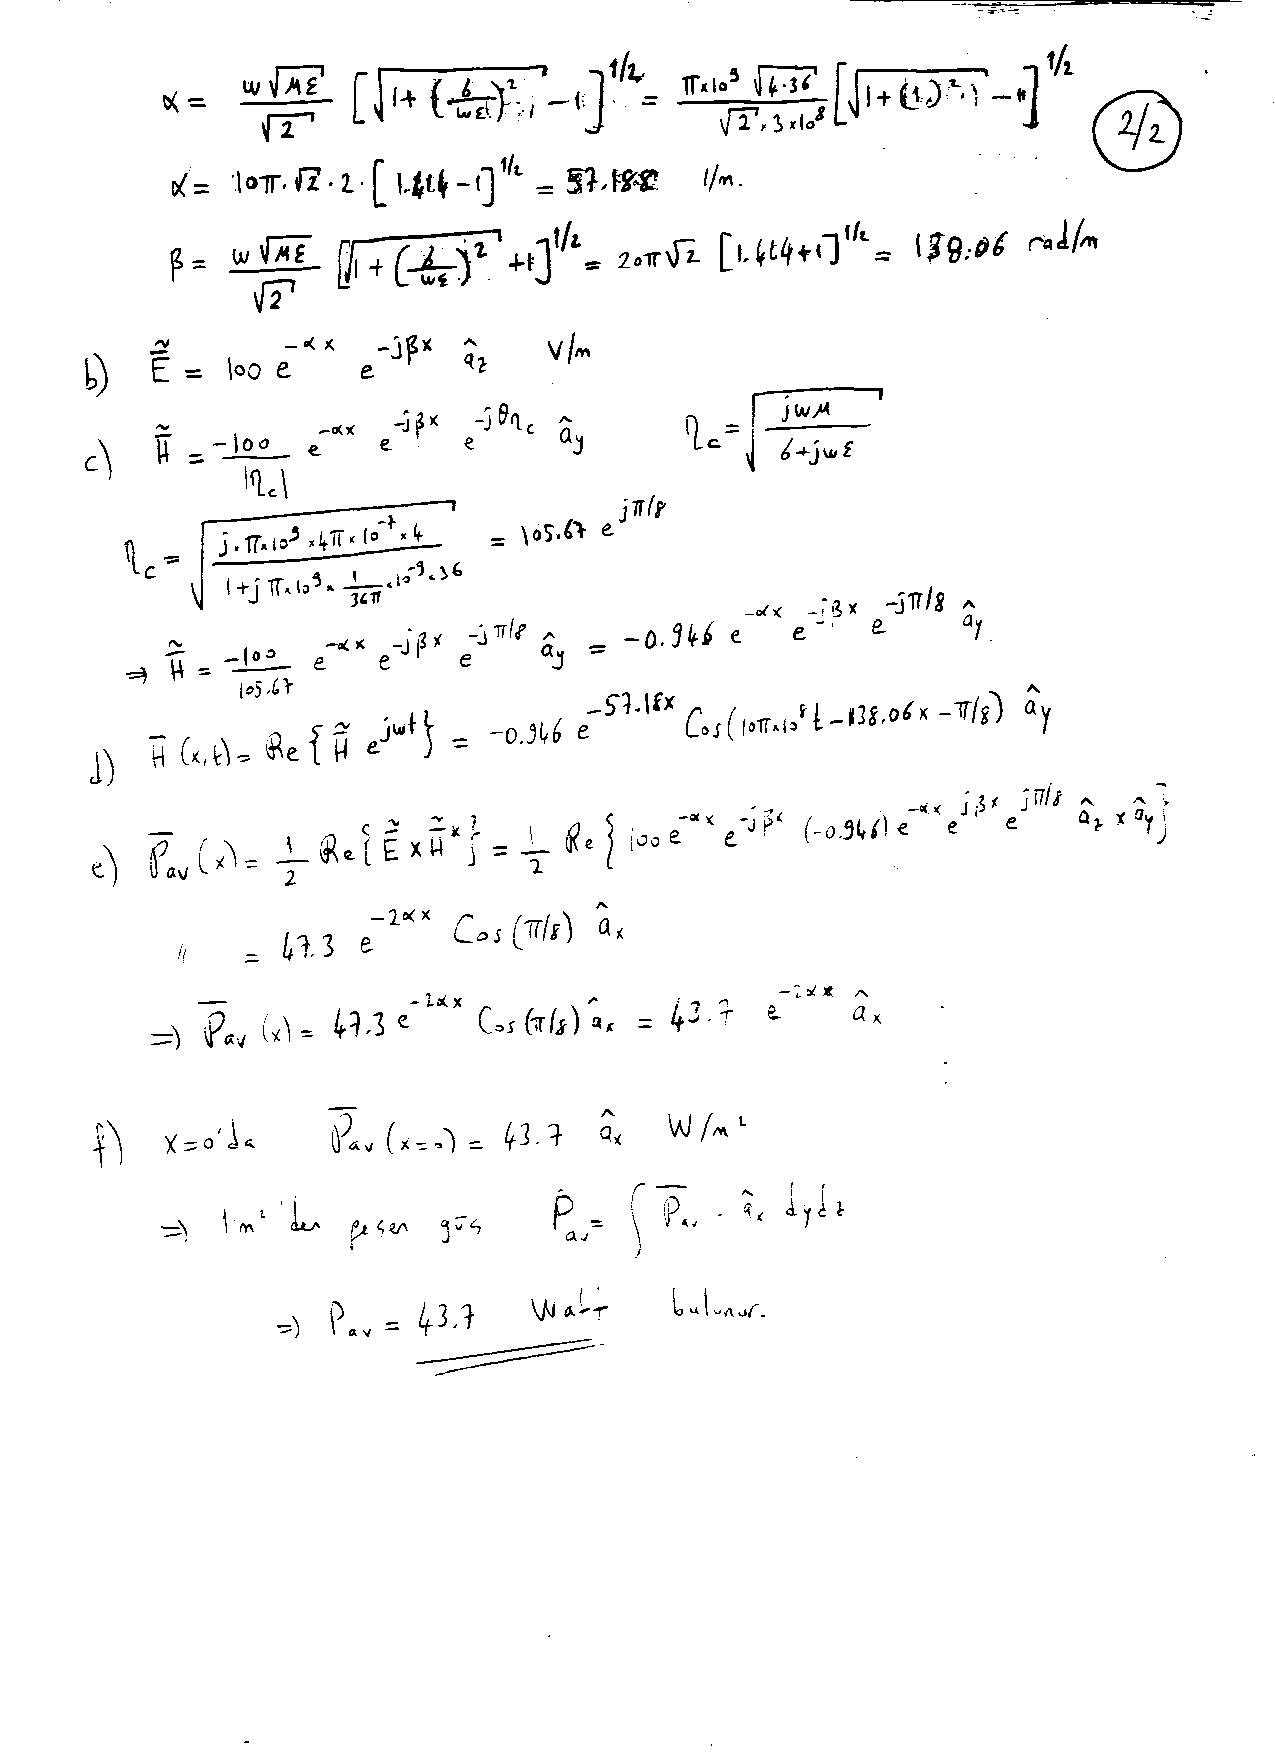 α = ω√με / √2 [√1+(6/ωε)² - 1]^1/2 = π×10⁹ √4·36 / √2 · 3×10⁸ [√1+(1)² - 1]^1/2
2/2
α = 10π·√2·2·[1.414-1]^1/2 = 57.188 1/m.
β = ω√με / √2 [√1+(6/ωε)² +1]^1/2 = 20π√2 [1.414+1]^1/2 = 138.06 rad/m
b) Ẽ = 100 e^-αx e^-jβx â_z V/m
c) H̃ = -100/|η_c| e^-αx e^-jβx e^-jθη_c â_y η_c = √jωμ / 6+jωε
η_c = √j·π×10⁹×4π×10⁻⁷×4 / 1+jπ×10⁹×1/36π×10⁻⁹×36 = 105.67 e^jπ/8
⇒ H̃ = -100/105.67 e^-αx e^-jβx e^-jπ/8 â_y = -0.946 e^-αx e^-jβx e^-jπ/8 â_y.
d) H̄(x,t) = Re{H̃ e^jωt} = -0.946 e^-57.18x Cos(10π×10⁸t - 138.06x - π/8) â_y
e) P̄_av(x) = 1/2 Re{Ẽ × H̃*} = 1/2 Re{100 e^-αx e^-jβx (-0.946) e^-αx e^jβx e^jπ/8 â_z × â_y}
" = 47.3 e^-2αx Cos(π/8) â_x
⇒ P̄_av(x) = 47.3 e^-2αx Cos(π/8) â_x = 43.7 e^-2αx â_x
f) x=0'da P̄_av(x=0) = 43.7 â_x W/m²
⇒ 1m²'den geçen güç P_av = ∫ P̄_av · â_x dydz
⇒ P_av = 43.7 Watt bulunur.